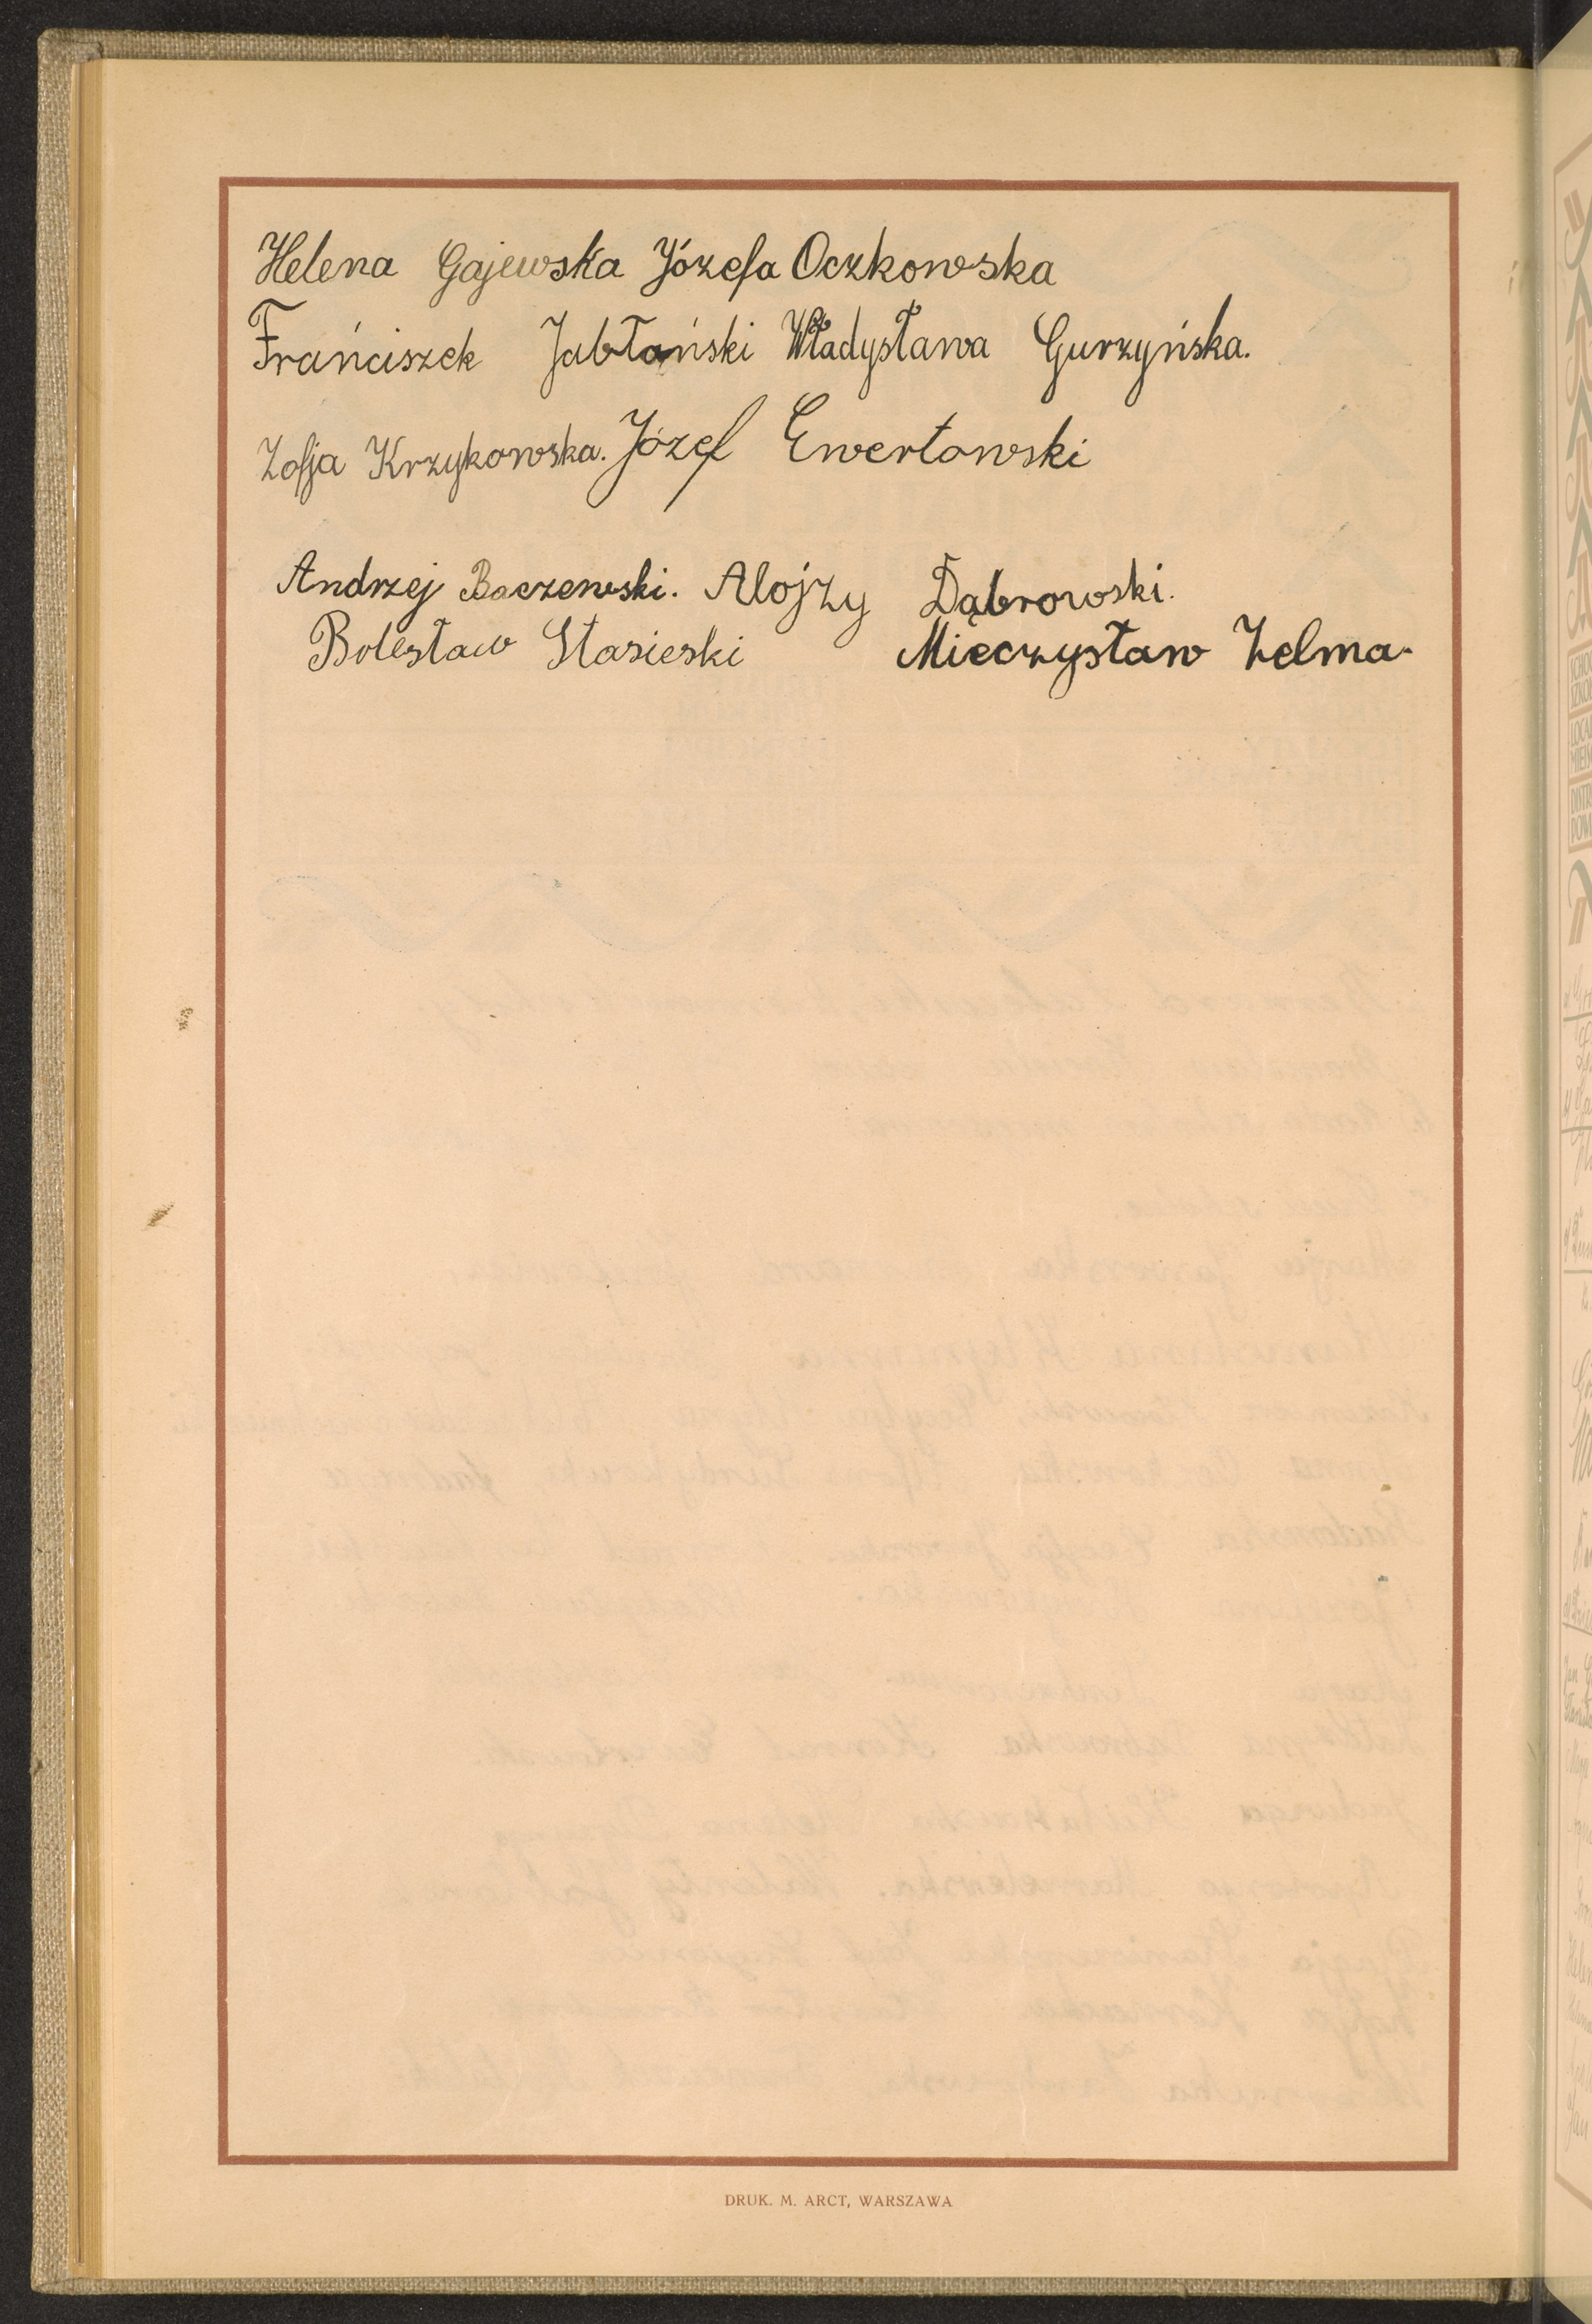 Helena Gajewska Józefa Oczkowska
Frańciszek Jabłoński Władysława Gurzyńska.
Zofja Krzykowska. Józef Ewertowski
Andrzej Baczewski. Alojzy Dąbrowski.
Bolesław Stasieski Mieczysław Zelma.
DRUK. M. ARCT, WARSZAWA